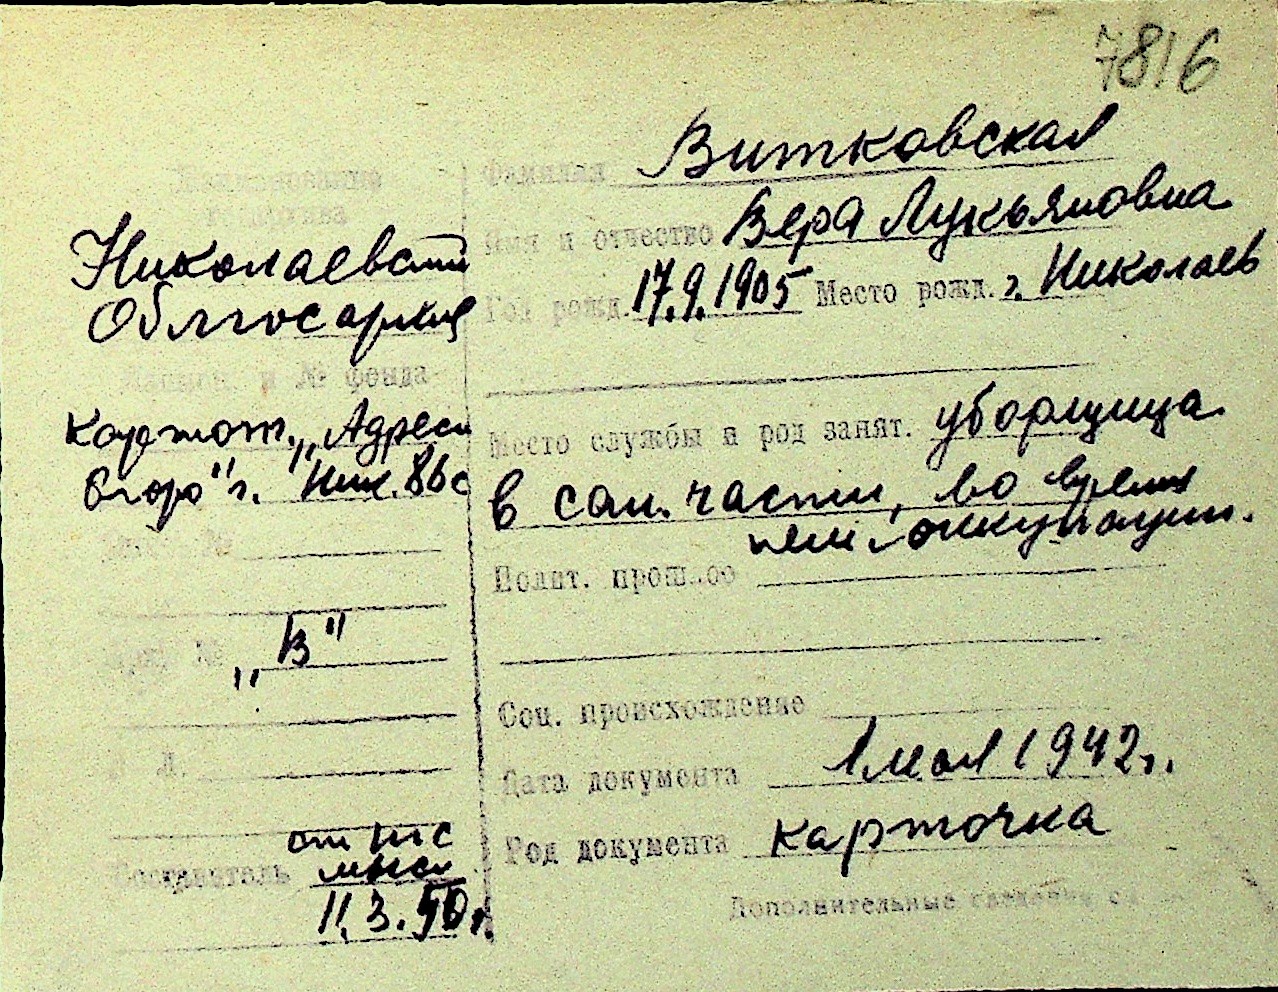 7816
Наименование
госархива
Николаевский
Облгосархив
Наимен. и № фонда
Картот. „Адресн
бюро" г. Ник.
„В"
Составитель
11.3.50г.
Фамилия Витковская
Имя и отчество Вера Лукьяновна
Год рожд. 17.9.1905 Место рожд. г. Николаев
Место службы и род занят. уборщица
в сан. части, во время
нем. оккупации.
Полит. прошлое
Соц. происхождение
Дата документа 1 мая 1942г.
Род документа карточка
Дополнительные сведения